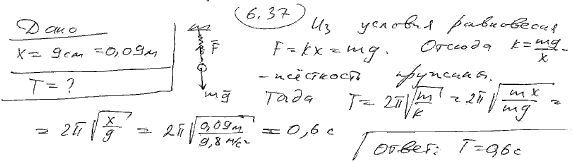 6.37
Дано
x = 9см = 0,09м
T = ?
F̄
mḡ
Из условия равновесия
F = kx = mg. Отсюда k = mg/x -
- жёсткость пружины.
Тогда T = 2π√(m/k) = 2π√(mx/mg) =
= 2π√(x/g) = 2π√(0,09м/9,8 м/с²) = 0,6 с
Ответ: T = 0,6с